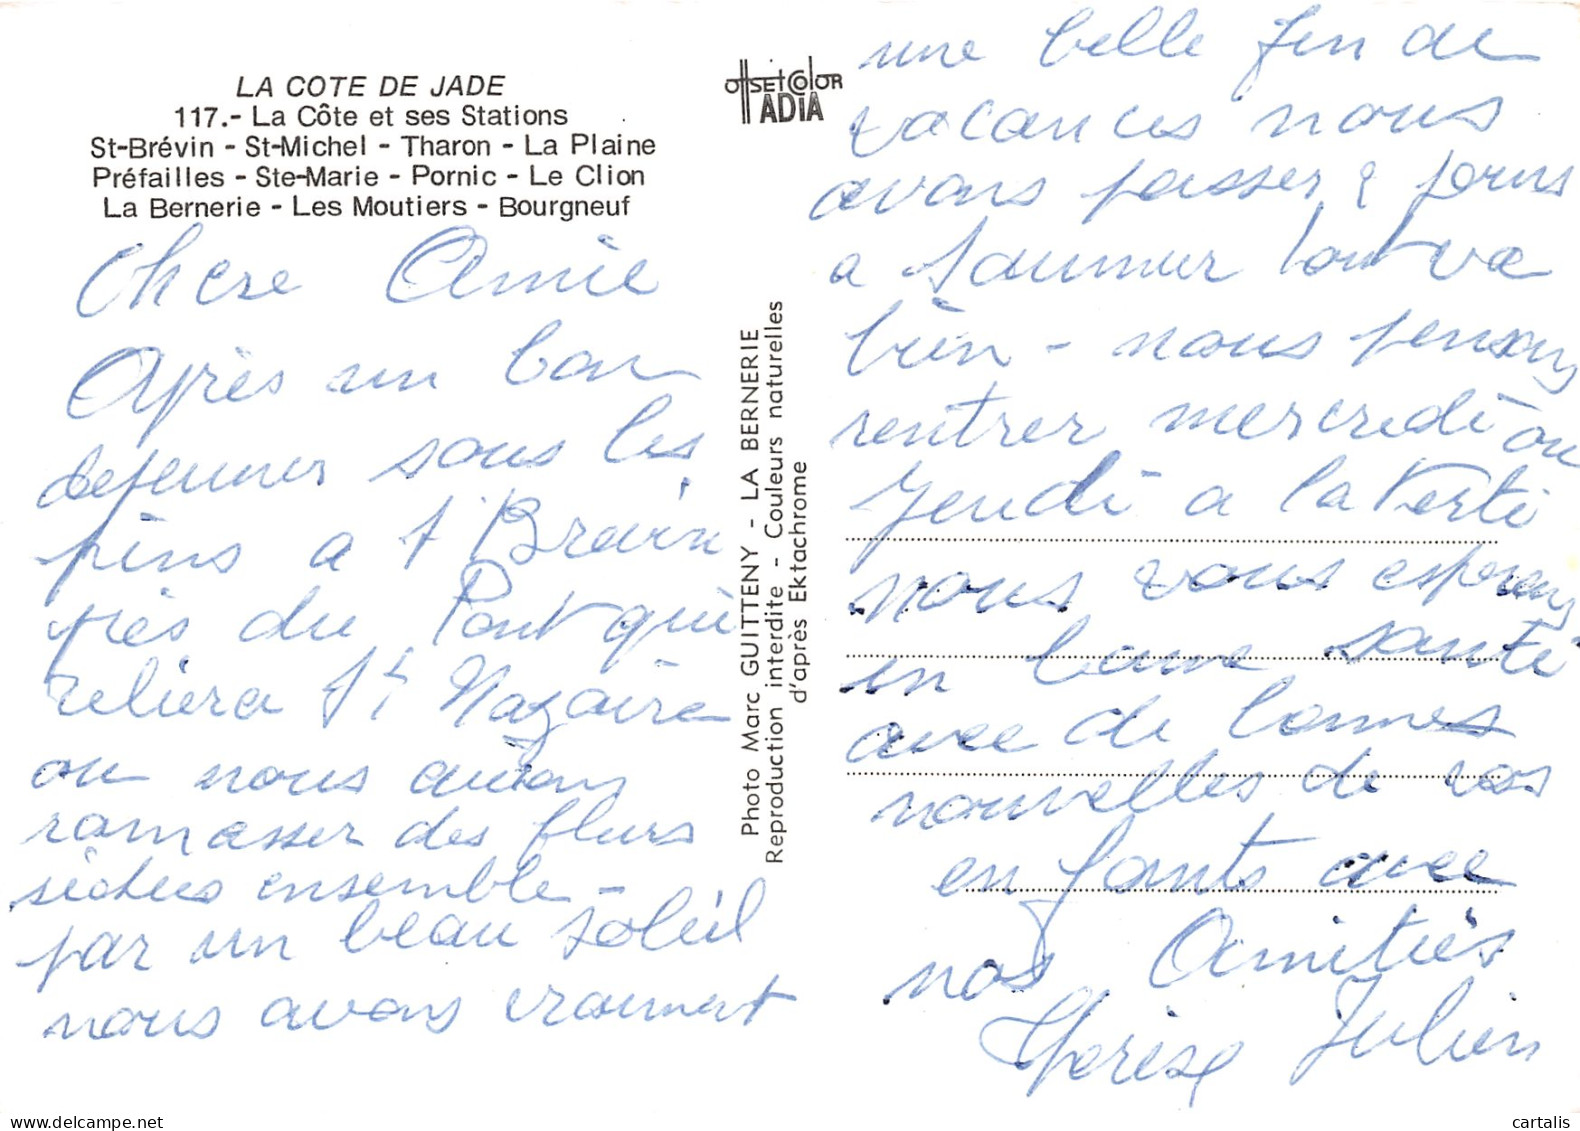 LA COTE DE JADE
117.- La Côte et ses Stations
St-Brévin - St-Michel - Tharon - La Plaine
Préfailles - Ste-Marie - Pornic - Le Clion
La Bernerie - Les Moutiers - Bourgneuf
Chere Amie
Après un bon
dejeuner sous les
pins a St Brevin
près du Pont qui
reliera St Nazaire
ou nous avions
ramasser des fleurs
séchées ensemble -
par un beau soleil
nous avons vraiment
offsetcolor
ADIA
Photo Marc GUITTENY - LA BERNERIE
Reproduction interdite - Couleurs naturelles
d'après Ektachrome
une belle fin de
vacances nous
avons passer 2 jours
a Saumur tout va
bien - nous pensons
rentrer mercredi ou
Jeudi a la Ferté
nous vous esperons
en bonne santé
avec de bonnes
nouvelles de vos
enfants avec
nos Amitiés
Therese Julien
cartalis